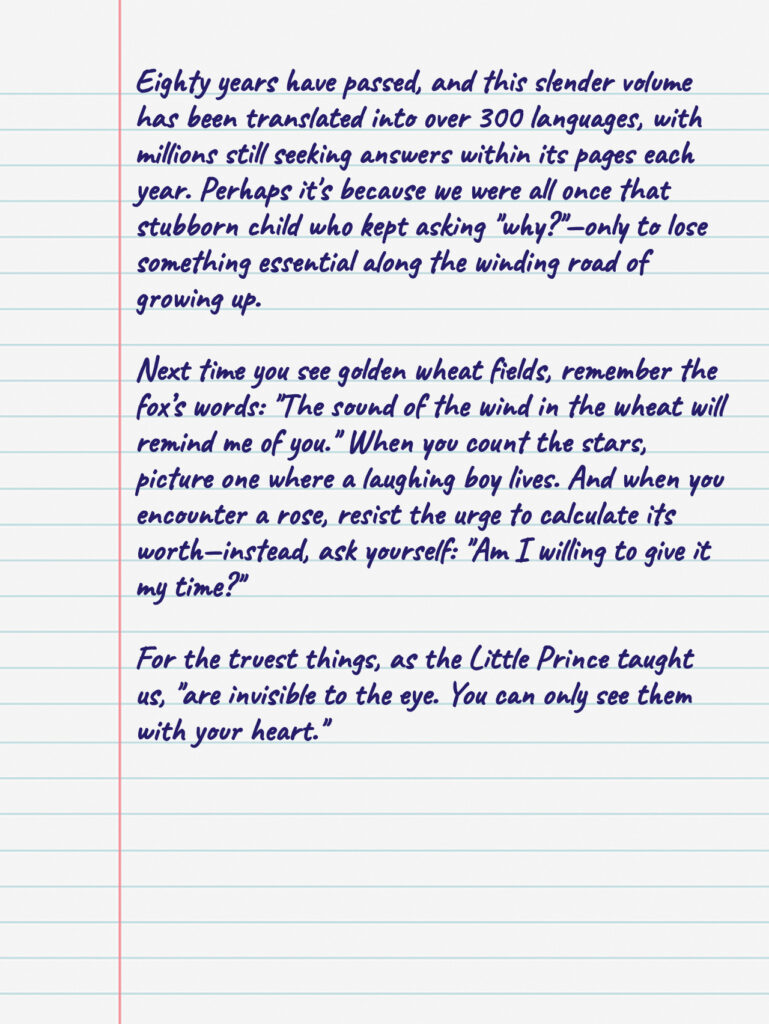 Eighty years have passed, and this slender volume
has been translated into over 300 languages, with
millions still seeking answers within its pages each
year. Perhaps it's because we were all once that
stubborn child who kept asking "why?"—only to lose
something essential along the winding road of
growing up.

Next time you see golden wheat fields, remember the
fox's words: "The sound of the wind in the wheat will
remind me of you." When you count the stars,
picture one where a laughing boy lives. And when you
encounter a rose, resist the urge to calculate its
worth—instead, ask yourself: "Am I willing to give it
my time?"

For the truest things, as the Little Prince taught
us, "are invisible to the eye. You can only see them
with your heart."